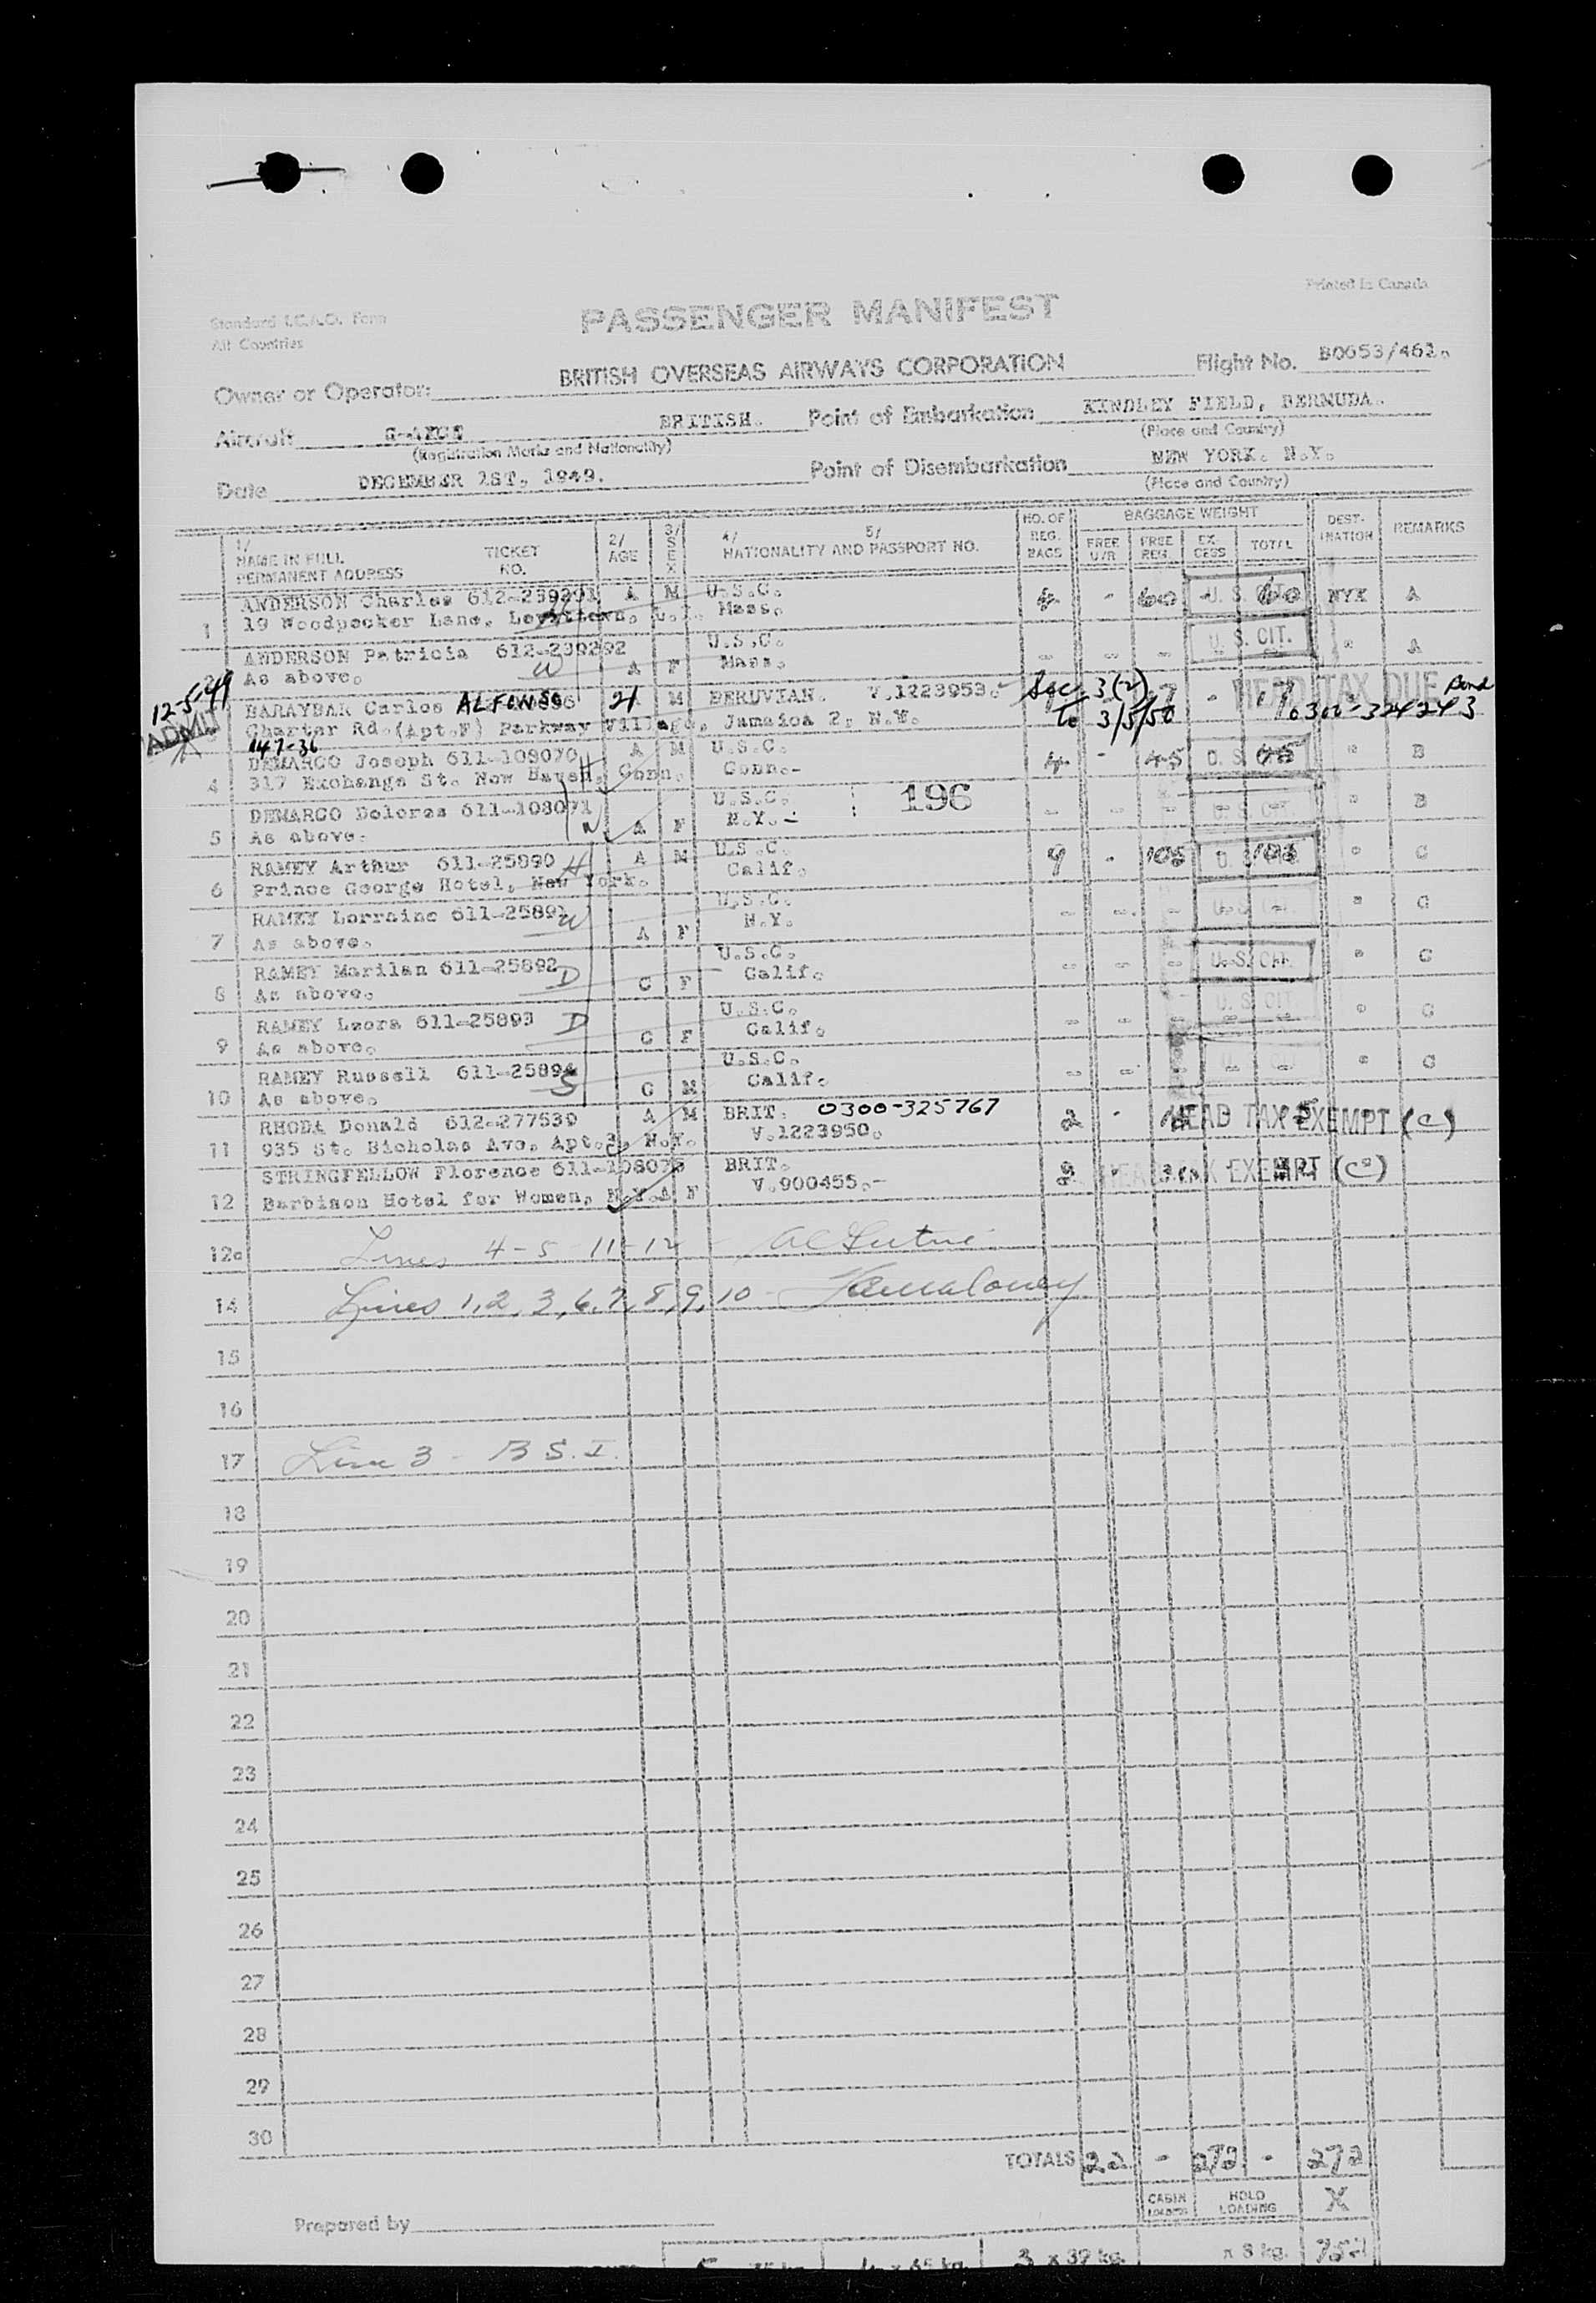 Printed in Canada
Standard I.C.A.O. Form
All Countries
PASSENGER MANIFEST
Owner or Operator: BRITISH OVERSEAS AIRWAYS CORPORATION Flight No.
Aircraft BRITISH. Point of Embarkation KINDLEY FIELD, BERMUDA.
(Registration Marks and Nationality) (Place and Country)
Date DECEMBER 1ST, 1949. Point of Disembarkation NEW YORK. N.Y.
(Place and Country)
1/ NAME IN FULL PERMANENT ADDRESS TICKET NO. 2/ AGE 3/ SEX 4/ 5/ NATIONALITY AND PASSPORT NO. NO. OF REG. BAGS BAGGAGE WEIGHT FREE U/R FREE REG. EX-CESS TOTAL DEST-INATION REMARKS
ANDERSON Charles 612-239291 A M U.S.C. 4 - 60 - U. S. CIT. 60 NYK A
1 19 Woodpecker Lane, Levittown, Mass.
ANDERSON Patricia 612-239292 U.S.C. - - - U. S. CIT. " A
2 As above. W A F Mass.
12-5-49 ADMIT
BARAYBAR Carlos ALFONSO 21 M PERUVIAN. V.1223953. Sec. 3(2) 17 - 17 HEAD TAX DUE Bond
Charter Rd.(Apt.F) Parkway Village, Jamaica 2, N.Y. to 3/5/50 0300-324243
147-36
DEMARCO Joseph 611-108070 A M U.S.C. 4 - 45 U. S. 45 " B
4 317 Exchange St. New Haven, Conn. H Conn.-
DEMARCO Dolores 611-108071 U.S.C. 196 - - - U. S. CIT. " B
5 As above. W A F N.Y.-
RAMEY Arthur 611-25890 H A M U.S.C. 9 - 105 105 " C
6 Prince George Hotel, New York. Calif.
RAMEY Lorraine 611-25891 U.S.C. - - - U. S. " C
7 As above. W A F N.Y.
RAMEY Marilan 611-25892 D U.S.C. - - - U. S. CIT. " C
8 As above. C F Calif.
RAMEY Leora 611-25893 D U.S.C. - - - U. S. CIT. " C
9 As above. C F Calif.
RAMEY Russell 611-25894 S U.S.C. - - - U. CIT. " C
10 As above. C M Calif.
RHODA Donald 612-277539 A M BRIT. 0300-325767 2 - HEAD TAX EXEMPT (C)
11 935 St. Nicholas Ave, Apt.3, N.Y. V.1223950.
STRINGFELLOW Florence 611-108073 BRIT. HEAD TAX EXEMPT
12 Barbison Hotel for Women, N.Y. A F V.900455.-
12a Lines 4-5-11-12
14 Lines 1,2,3,6,7,8,9,10
15
16
17 Line 3 - B.S.I.
18
19
20
21
22
23
24
25
26
27
28
29
30
TOTALS 22 - 272 - 272
CABIN LOADING HOLD LOADING X
Prepared by
3 x 39 kg. x 8 kg.